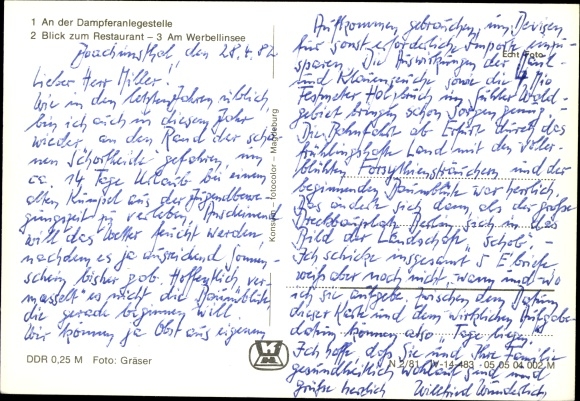 1 An der Dampferanlegestelle
2 Blick zum Restaurant – 3 Am Werbellinsee
Joachimsthal, den 28.4.82
Lieber Herr Miller!
Wie in den letzten Jahren üblich,
bin ich auch in diesem Jahr
wieder an den Rand der schö-
nen Schorfheide gefahren, um
ca. 14 Tage Urlaub bei einem
alten Kumpel aus der Jugendbewe-
gungszeit zu verleben. Anscheinend
will das Wetter feucht werden,
nachdem es ja ausreichend Sonnen-
schein bisher gab. Hoffentlich ver-
masselt es nicht die Baumblüte,
die gerade beginnen will.
Wir können ja Obst aus eigenem
DDR 0,25 M Foto: Gräser
Konsum – fotocolor – Magdeburg
Echt Foto
Aufkommen gebrauchen, um Devisen
für sonst erforderliche Importe einzu-
sparen. Die Auswirkungen der Maul-
und Klauenseuche sowie die 4 Mio
Festmeter Holzbruch im Wald-
gebiet bringen schon Sorgen genug.
Die Bahnfahrt ab Erfurt durch das
frühlingshafte Land mit den voller-
blühten Forsythiensträuchern und der
beginnenden Baumblüte war herrlich.
Das änderte sich dann, als der große
Dreckbauplatz Berlin sich in das
Bild der Landschaft "schob". –
Ich schicke insgesamt 5 Briefe
weiß aber noch nicht, wann und wo
ich sie aufgebe. Zwischen dem Datum
dieser Karte und dem wirklichen Aufgabe-
datum können also "Tage liegen".
Ich hoffe, daß Sie und Ihre Familie
gesundheitlich wohlauf sind und
grüße herzlich Willfried Wunderlich
N 2/81 IV-14-483 05 05 04 002 M